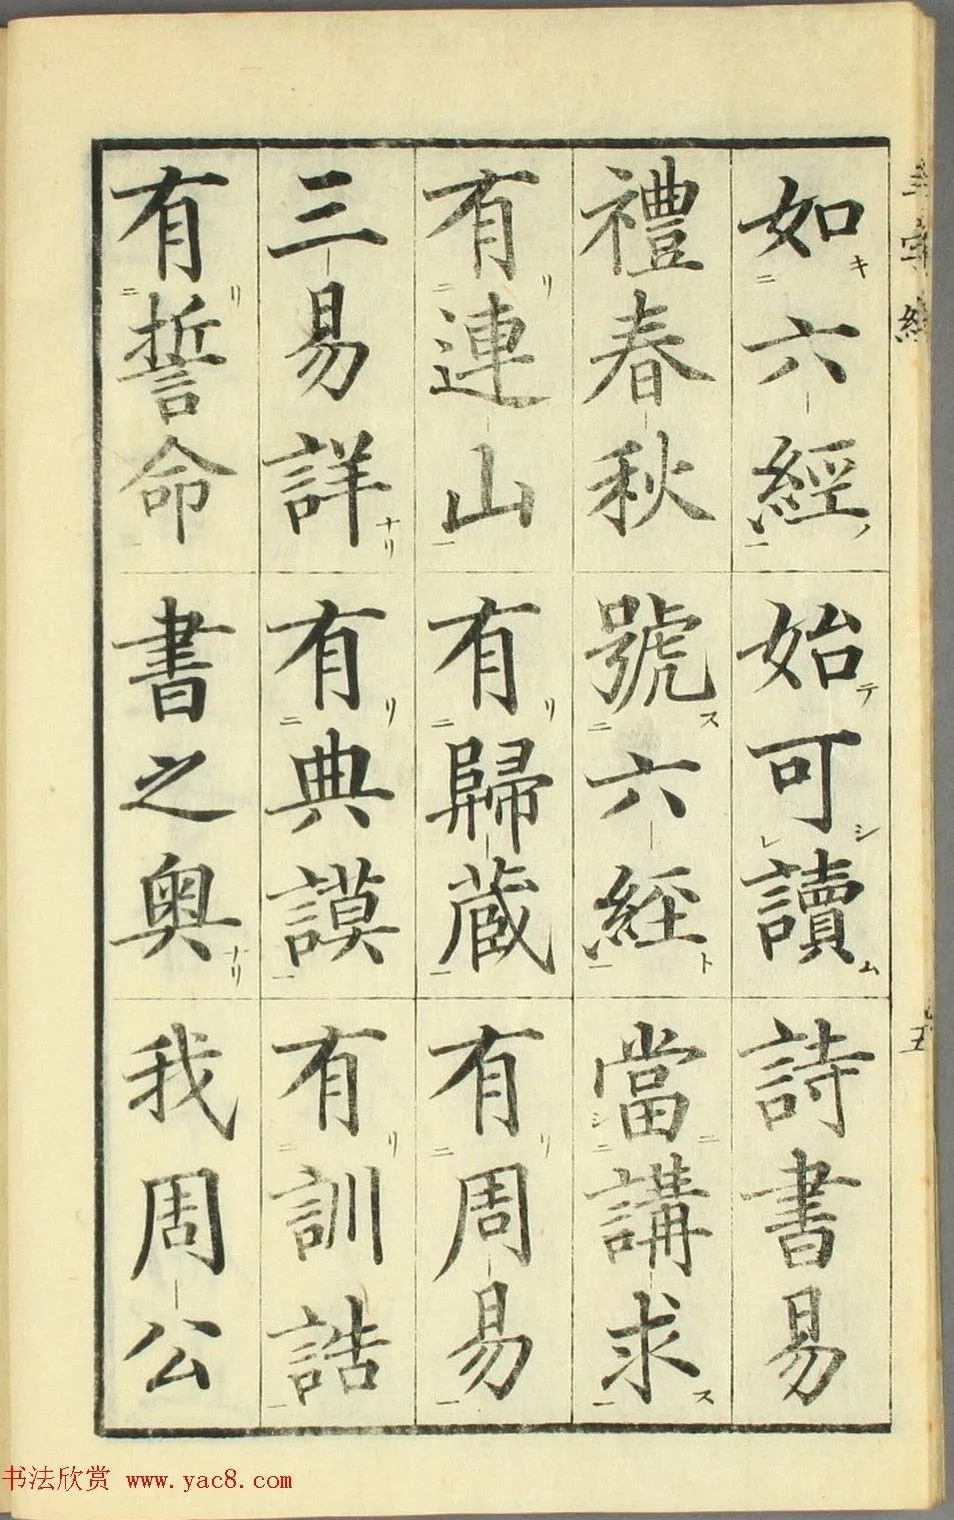 如六經始可讀詩書易
禮春秋號六經當講求
有連山有歸蔵有周易
三易詳有典謨有訓誥
有誓命書之奧我周公
书法欣赏 www.yac8.com